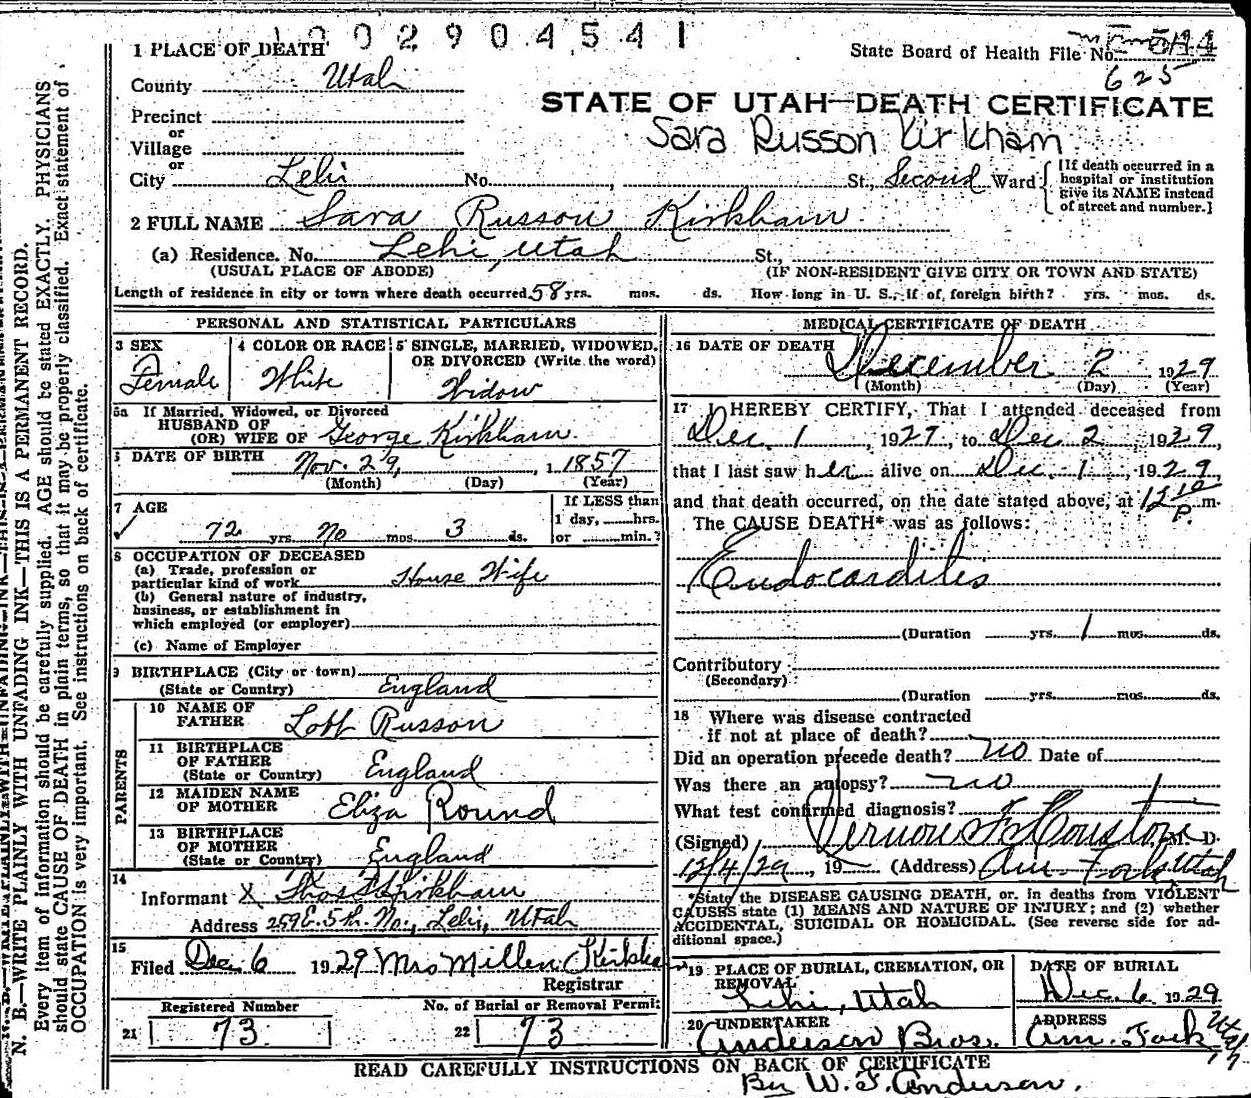 1002904541
1 PLACE OF DEATH
State Board of Health File No. 544
625
County Utah
STATE OF UTAH—DEATH CERTIFICATE
Precinct
or
Sara Russon Kirkham
Village
or
City Lehi No. , St., Second Ward
[If death occurred in a hospital or institution give its NAME instead of street and number.]
2 FULL NAME Sara Russon Kirkham
(a) Residence. No. Lehi, Utah St.,
(USUAL PLACE OF ABODE) (IF NON-RESIDENT GIVE CITY OR TOWN AND STATE)
Length of residence in city or town where death occurred 58 yrs. mos. ds. How long in U. S., if of foreign birth? yrs. mos. ds.
PERSONAL AND STATISTICAL PARTICULARS
3 SEX 4 COLOR OR RACE 5 SINGLE, MARRIED, WIDOWED, OR DIVORCED (Write the word)
Female White Widow
5a If Married, Widowed, or Divorced
HUSBAND OF
(OR) WIFE OF George Kirkham
6 DATE OF BIRTH Nov. 29, 1 1857
(Month) (Day) (Year)
7 AGE If LESS than
1 day, hrs.
72 yrs. No mos. 3 ds. or min.?
8 OCCUPATION OF DECEASED
(a) Trade, profession or
particular kind of work House Wife
(b) General nature of industry,
business, or establishment in
which employed (or employer)
(c) Name of Employer
9 BIRTHPLACE (City or town)
(State or Country) England
PARENTS
10 NAME OF
FATHER Russon
11 BIRTHPLACE
OF FATHER
(State or Country) England
12 MAIDEN NAME
OF MOTHER Eliza Round
13 BIRTHPLACE
OF MOTHER
(State or Country) England
14
Informant X Kirkham
Address 259 E. 5th No., Lehi, Utah
15
Filed Dec. 6 1929 Mrs Millen Kirkha
Registrar
Registered Number No. of Burial or Removal Permit
21 73 22 73
MEDICAL CERTIFICATE OF DEATH
16 DATE OF DEATH December 2 1929
(Month) (Day) (Year)
17 I HEREBY CERTIFY, That I attended deceased from
Dec. 1, 1929, to Dec 2, 1929,
that I last saw her alive on Dec. 1, 1929,
and that death occurred, on the date stated above, at 12 10 P. m.
The CAUSE DEATH* was as follows:
Endocarditis
(Duration yrs. 1 mos. ds.
Contributory
(Secondary)
(Duration yrs. mos. ds.
18 Where was disease contracted
if not at place of death?
Did an operation precede death? no Date of
Was there an autopsy? no
What test confirmed diagnosis?
(Signed) Vernon F Houston M. D.
12/4/29, 19 (Address) Am. Fork Utah
*State the DISEASE CAUSING DEATH, or, in deaths from VIOLENT
CAUSES state (1) MEANS AND NATURE OF INJURY; and (2) whether
ACCIDENTAL, SUICIDAL OR HOMICIDAL. (See reverse side for ad-
ditional space.)
19 PLACE OF BURIAL, CREMATION, OR REMOVAL DATE OF BURIAL
Lehi, Utah Dec. 6 1929
20 UNDERTAKER ADDRESS
Anderson Bros. Am. Fork Utah
READ CAREFULLY INSTRUCTIONS ON BACK OF CERTIFICATE
By W. J. Anderson.
N. B.—WRITE PLAINLY WITH UNFADING INK—THIS IS A PERMANENT RECORD.
Every item of information should be carefully supplied. AGE should be stated EXACTLY. PHYSICIANS
should state CAUSE OF DEATH in plain terms, so that it may be properly classified. Exact statement of
OCCUPATION is very important. See instructions on back of certificate.